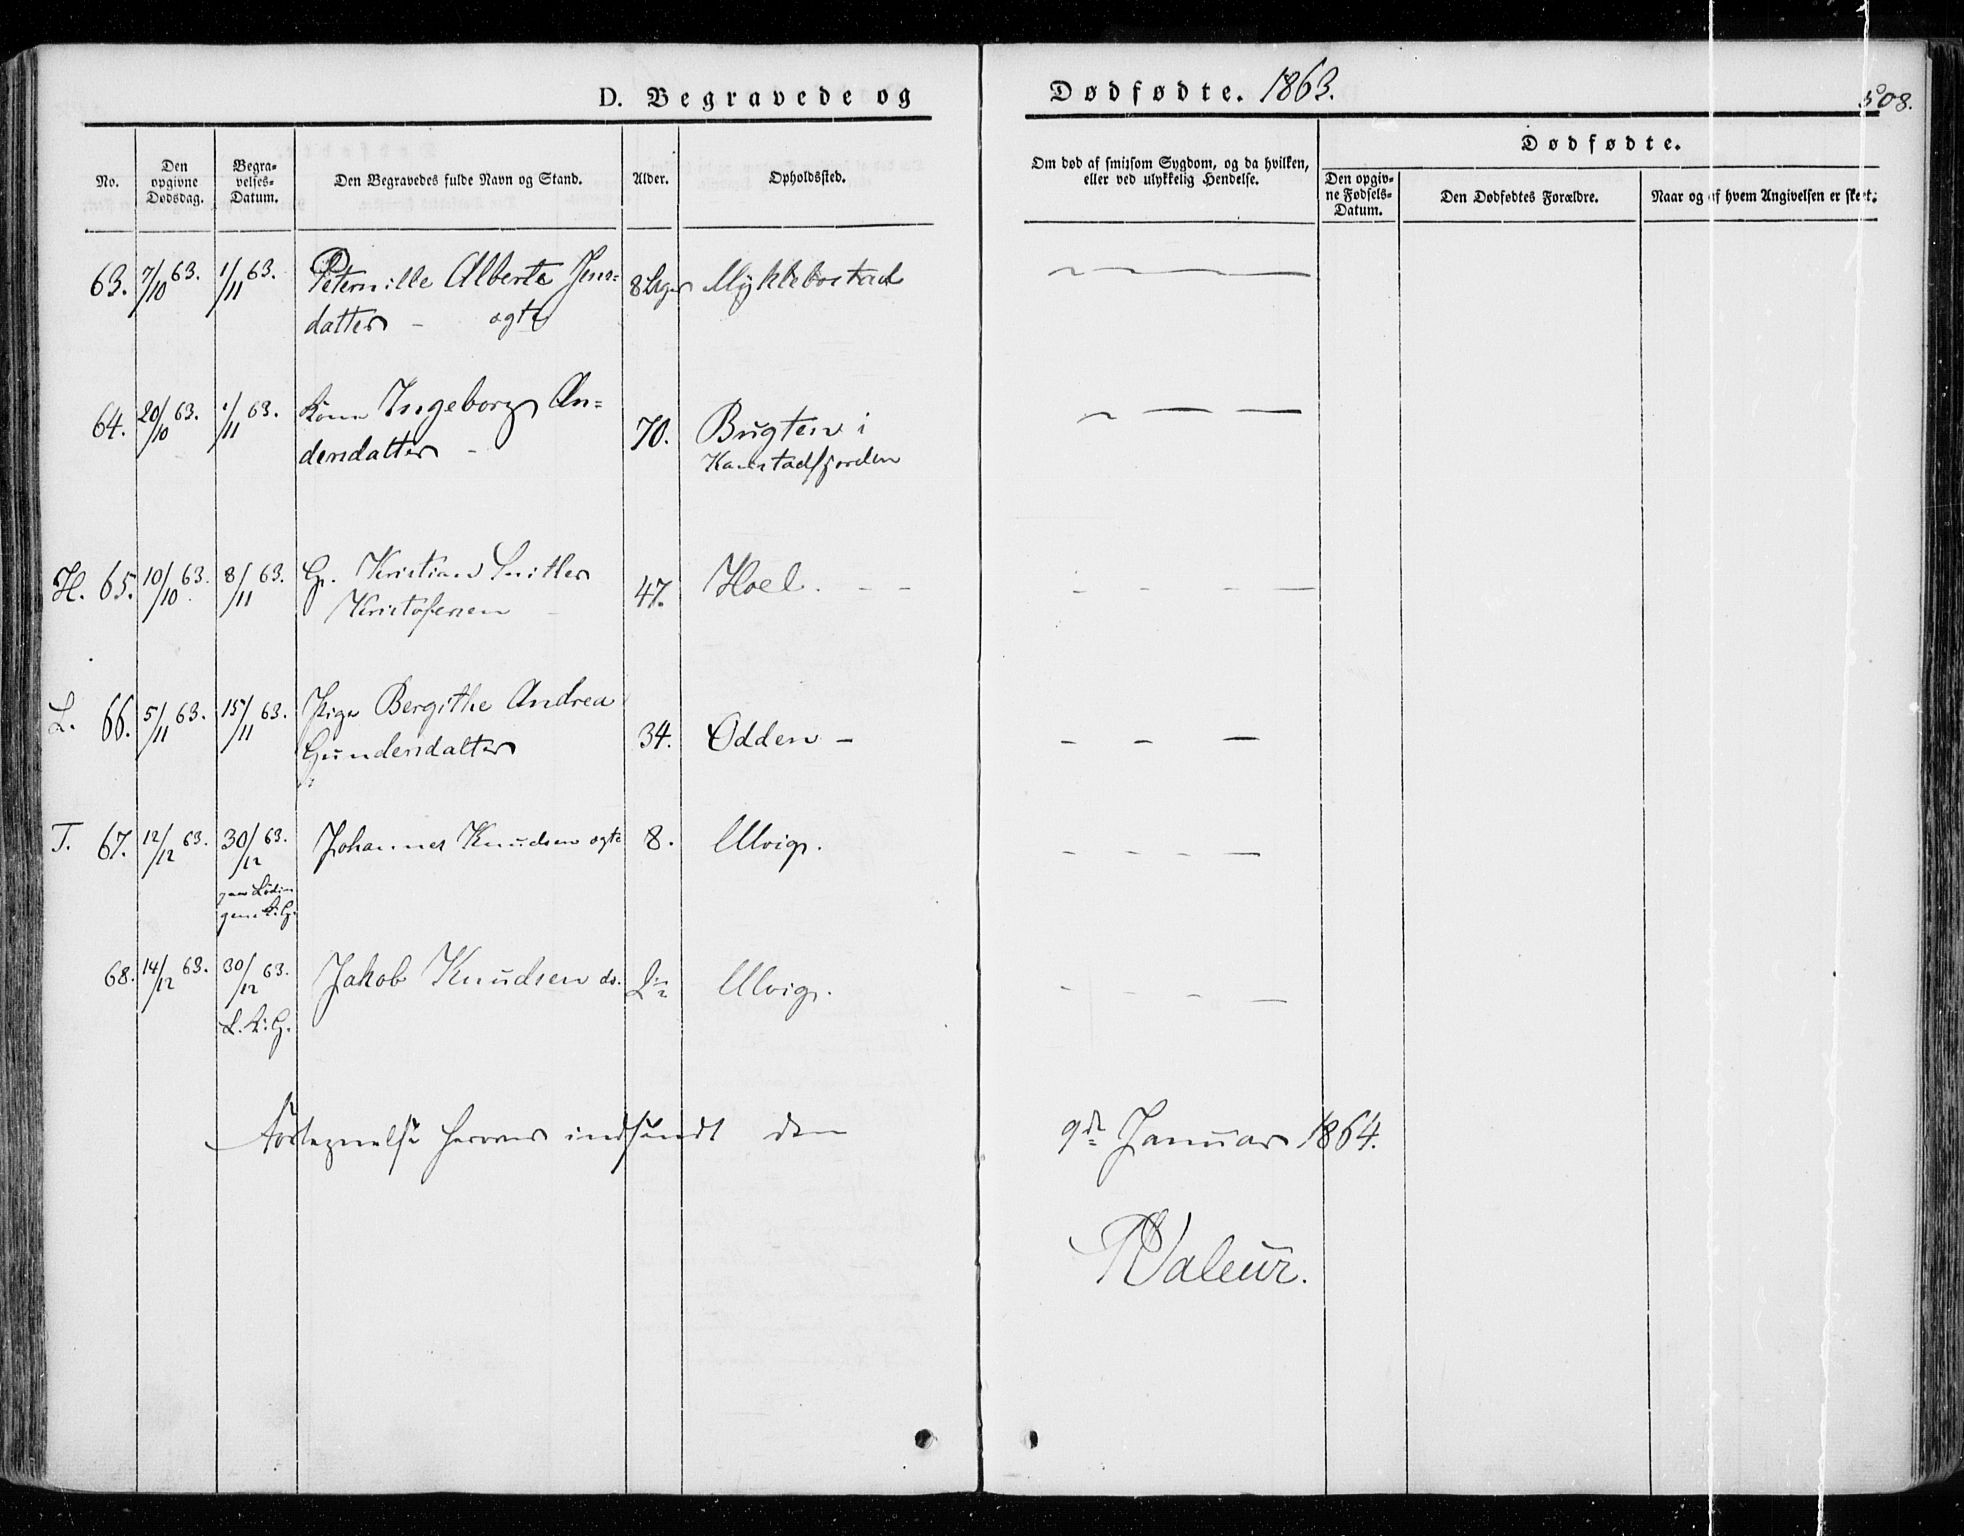 D. Begravede og Dødfødte. 1863.
508.
No.
Den opgivne Dødsdag.
Begravelses-Datum.
Den Begravedes fulde Navn og Stand.
Alder.
Opholdssted.
Om død af smitsom Sygdom, og da hvilken, eller ved ulykkelig Hendelse.
Dødfødte.
Den opgivne Fødsels-Datum.
Den Dødfødtes Forældre.
Naar og af hvem Angivelsen er skeet.
63. 7/10 63. 1/11 63. Peternille Alberte Jens= 8 Uger Myklebostad
datter – ægte
64. 20/10 63. 1/11 63. Kone Ingeborg An= 70. Bugten i
dersdatter – Kanstadfjorden
H. 65. 10/10 63. 8/11 63. G. Kristian Snitler 47. Hoel. – –
Kristofersen –
L. 66. 5/11 63. 15/11 63. Pige Bergithe Andrea 34. Odden –
Gundersdatter
T. 67. 12/12 63. 30/12 63. Johannes Knudsen ægte 8. Ulvig.
paa Lødin=
gens K.G.
68. 14/12 63. 30/12 63. Jakob Knudsen do. Ulvig.
L. K. G.
Fortegnelse herover indsendt den 9de Januar 1864.
Valeur.